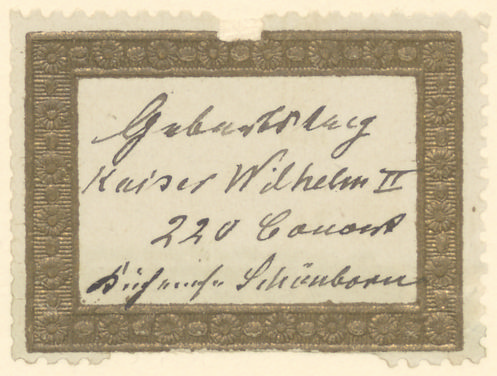 Geburtstag
Kaiser Wilhelm II
220 Couvert
Schönborn